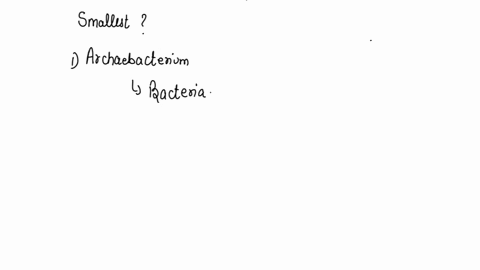 Smallest ?
1) Archaebacterium
↳ Bacteria.